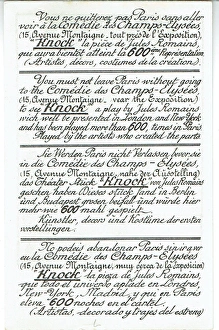 Vous ne quitterez pas Paris sans aller
voir à la Comédie des Champs-Elysées
(15, Avenue Montaigne, tout près de l'Exposition)
"Knock" la pièce de Jules Romains,
qui aura bientôt atteint la 600e Représentation
(Artistes, décors, costumes de la création).
You must not leave Paris without going
to the Comédie des Champs-Elysées,
(15, Avenue Montaigne, near the Exposition)
to see "Knock" a play by Jules Romains
wich well be presented in London and New York
and has been played more than 600 times in Paris
Played by the artists who created the parts
Sie Werden Paris nicht Verlassen bevor sie
in die Comédie des Champs-Elysées,
(15, Avenue Montaigne, nahe der Austellung)
das Theater Stück "Knock" von Jules Romains
gesehen haben. Dieses stück fand in Berlin,
und Budapest grosen beifall und würde hier
mehr wie 600 mahl gespielt.
Künstler, decors und Kostüme der ersten
vorstellungen.
No podeis abandonar Paris sin ir a ver
eu la Comédie des Champs-Elysées
(15, Avenue Montaigne, muy cerca de la Exposicion)
"Knock" la pieza de Jules Romains,
que todo el universo aplaude en Londres,
New York, Madrid, y que en Paris
eleva 600 noches en el cartel.
(Artistas, decorado y trajes del estreno)